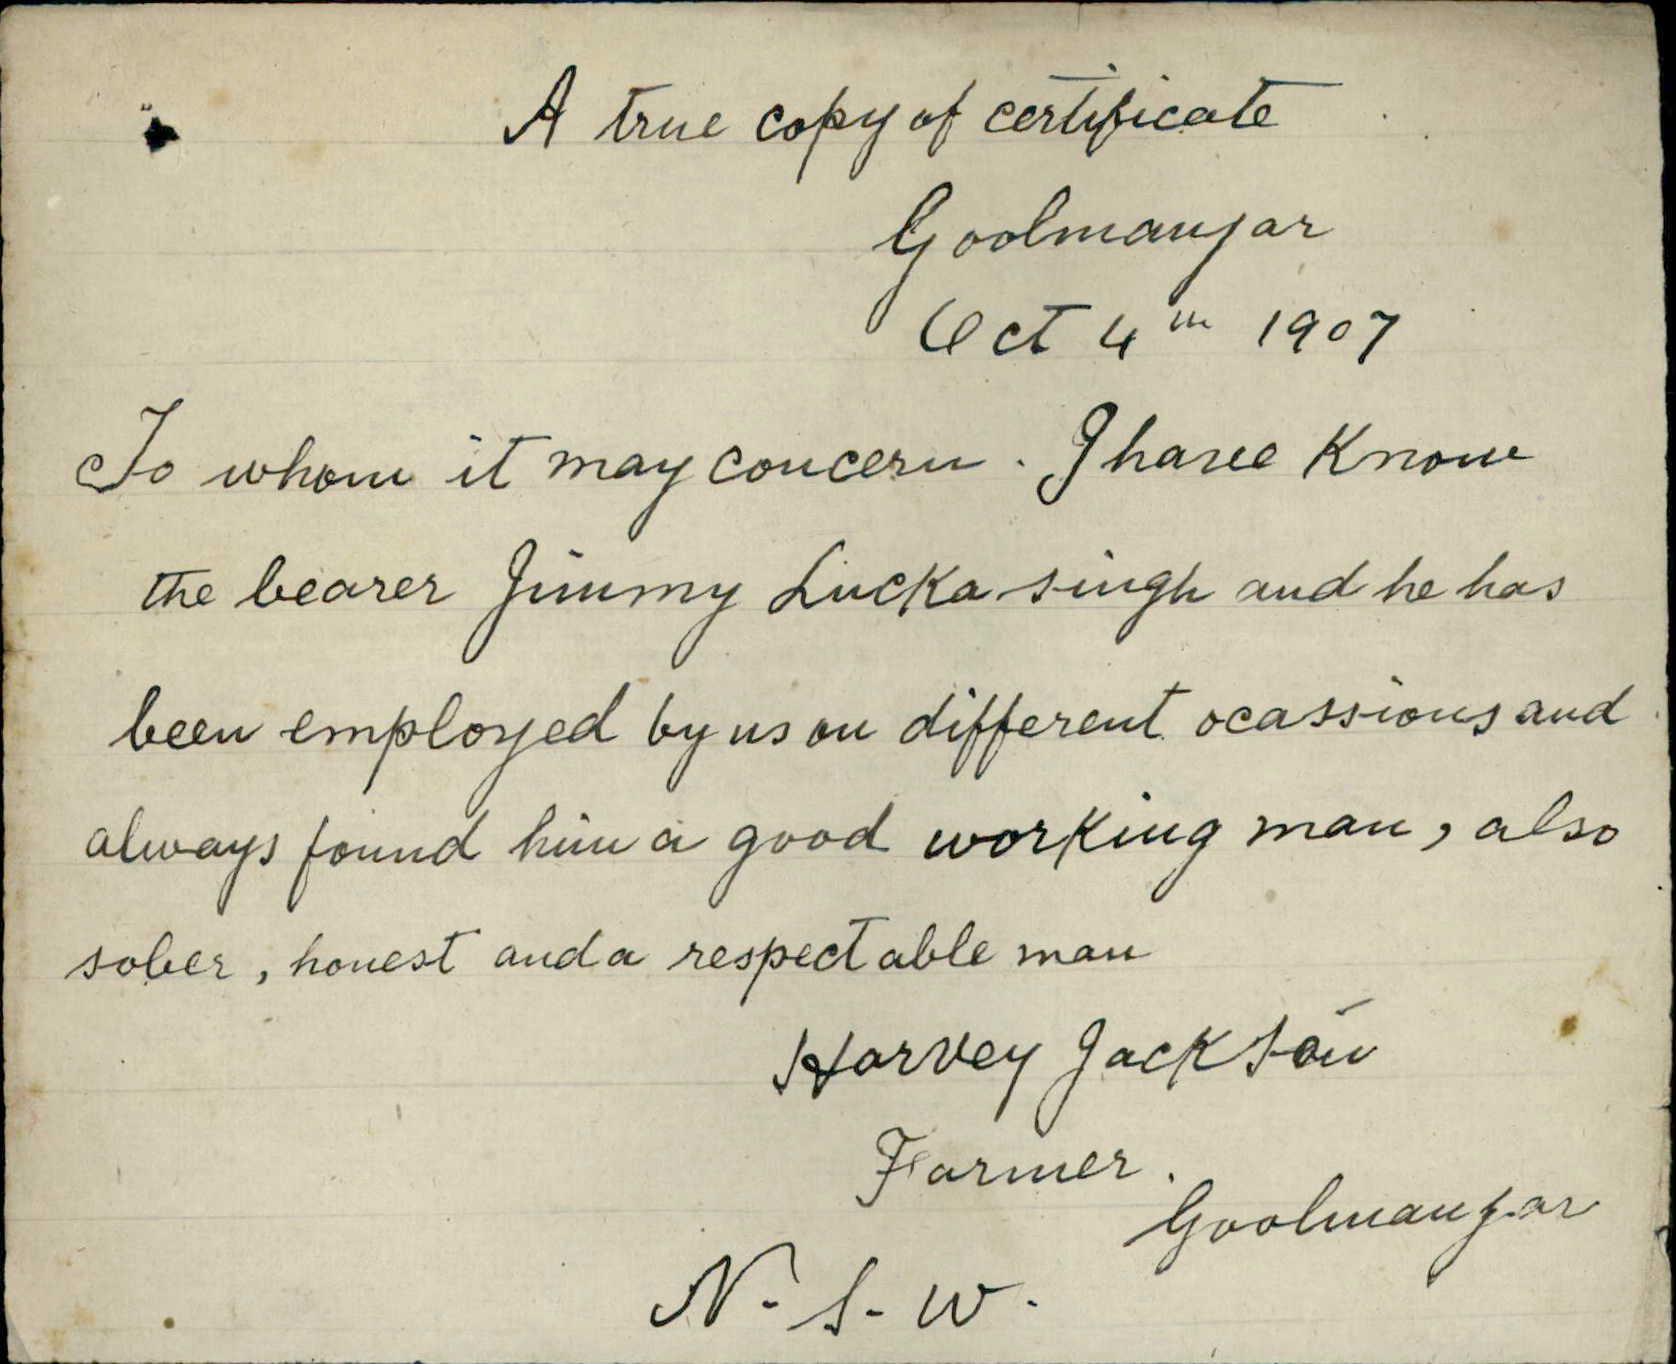 A true copy of certificate
Goolmangar
Oct 4th 1907
To whom it may concern. I have Know
the bearer Jimmy Lucka singh and he has
been employed by us on different ocassions and
always found him a good working man, also
sober, honest and a respectable man
Harvey Jackson
Farmer.
Goolmangar
N. S. W.